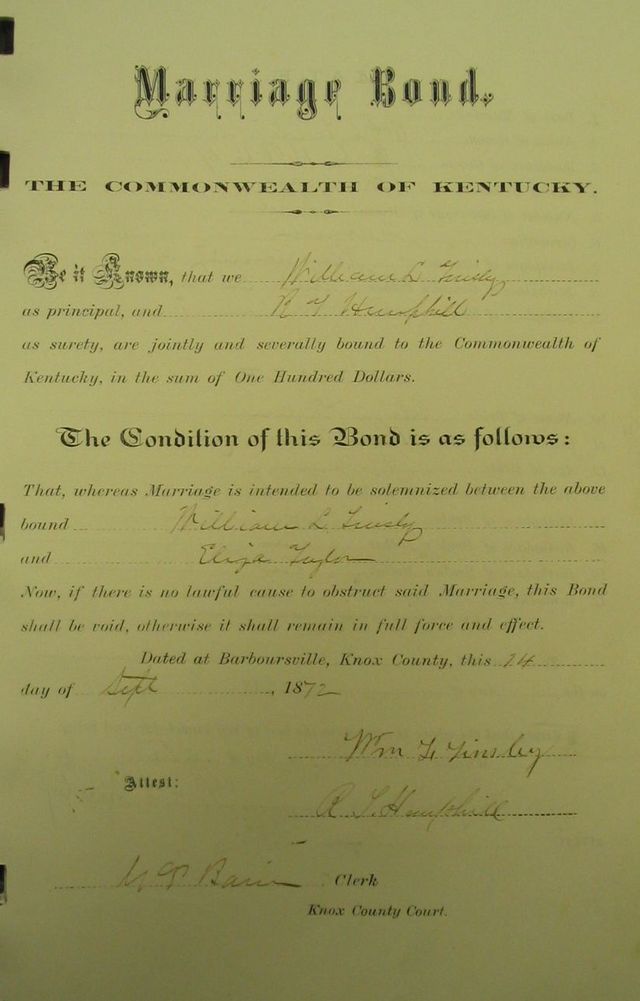 Marriage Bond.
THE COMMONWEALTH OF KENTUCKY.
Be it Known, that we William L Tinsly
as principal, and R T Hemphill
as surety, are jointly and severally bound to the Commonwealth of
Kentucky, in the sum of One Hundred Dollars.
The Condition of this Bond is as follows:
That, whereas Marriage is intended to be solemnized between the above
bound William L Tinsly
and Eliza Taylor
Now, if there is no lawful cause to obstruct said Marriage, this Bond
shall be void, otherwise it shall remain in full force and effect.
Dated at Barboursville, Knox County, this 24
day of Sept , 1872
Wm L Tinsley
Attest:
R T Hemphill
Clerk
Knox County Court.